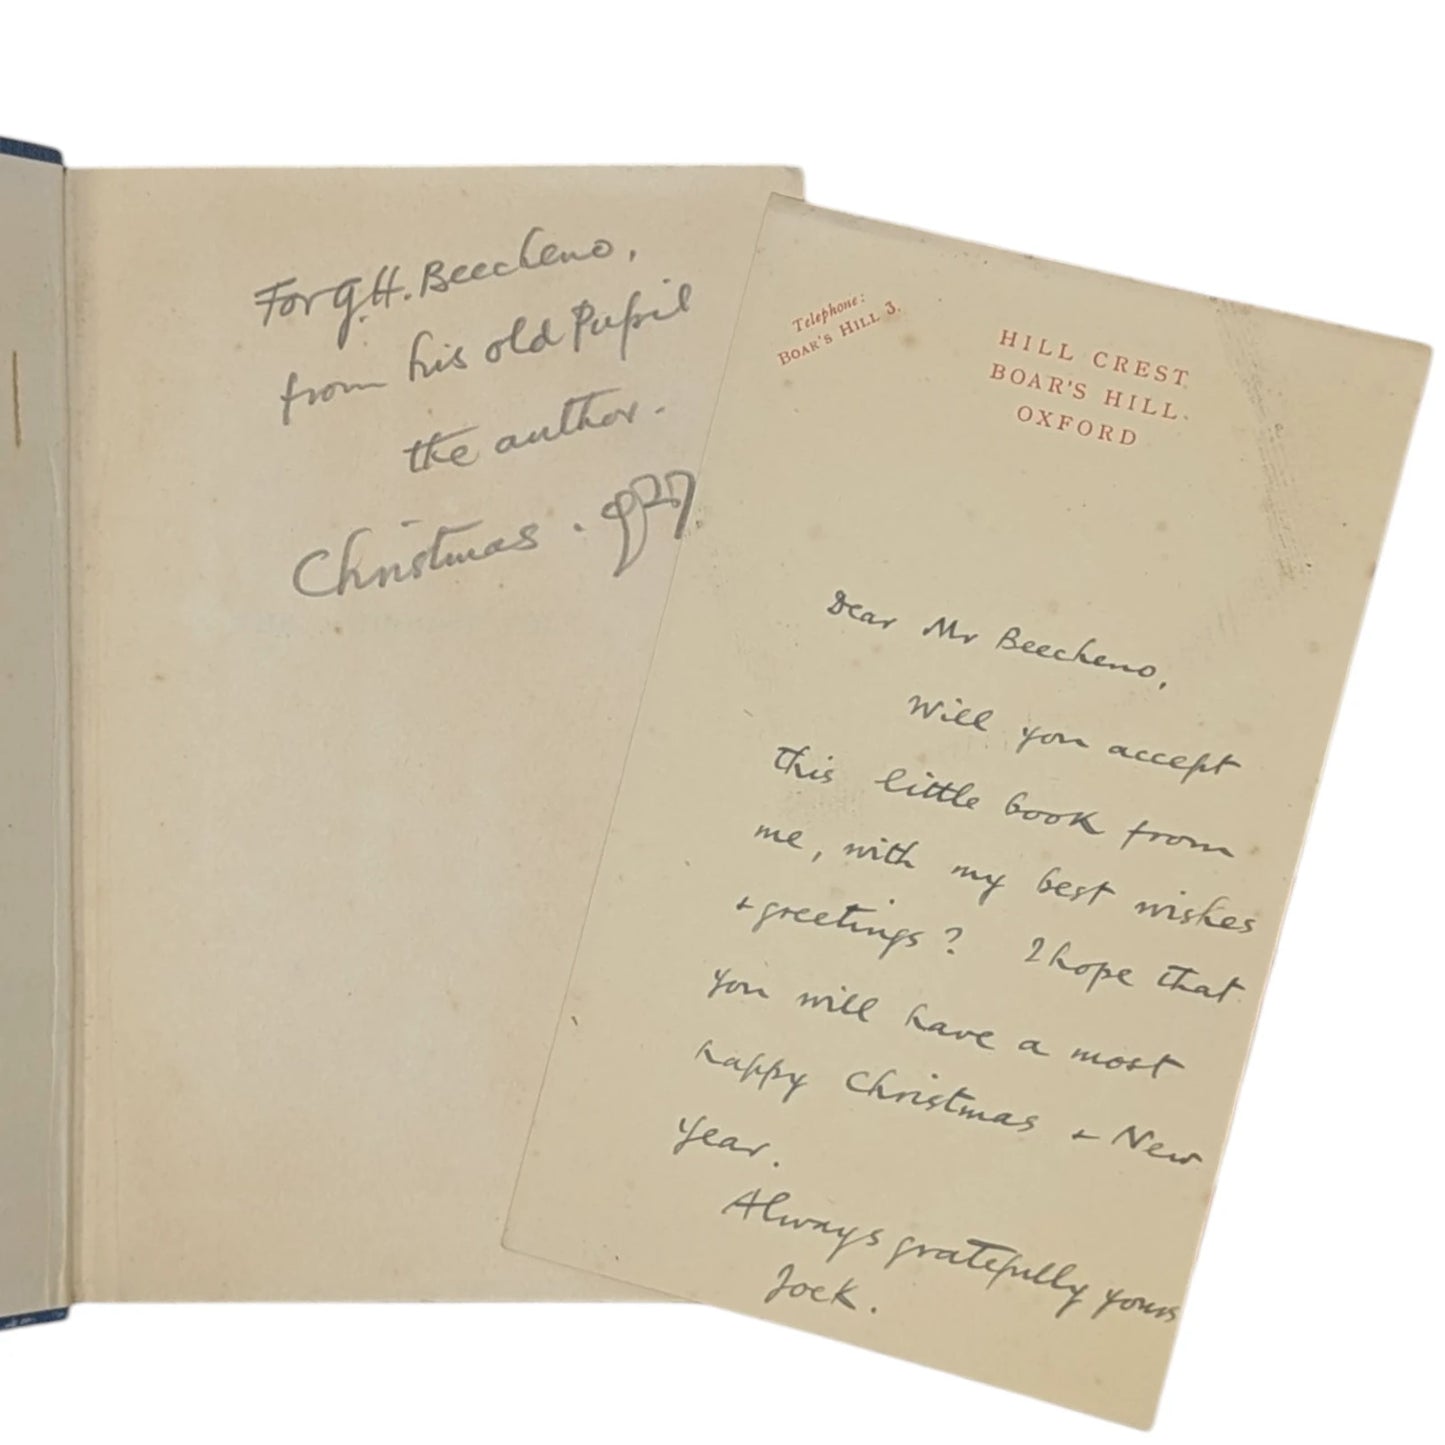 For G.H. Beecheno,
from his old Pupil
the author.
Christmas. 1927
Telephone:
BOAR'S HILL 3.
HILL CREST
BOAR'S HILL.
OXFORD
Dear Mr Beecheno,
Will you accept
this little book from
me, with my best wishes
+ greetings? I hope that
you will have a most
happy Christmas + New
Year.
Always gratefully yours
Jock.